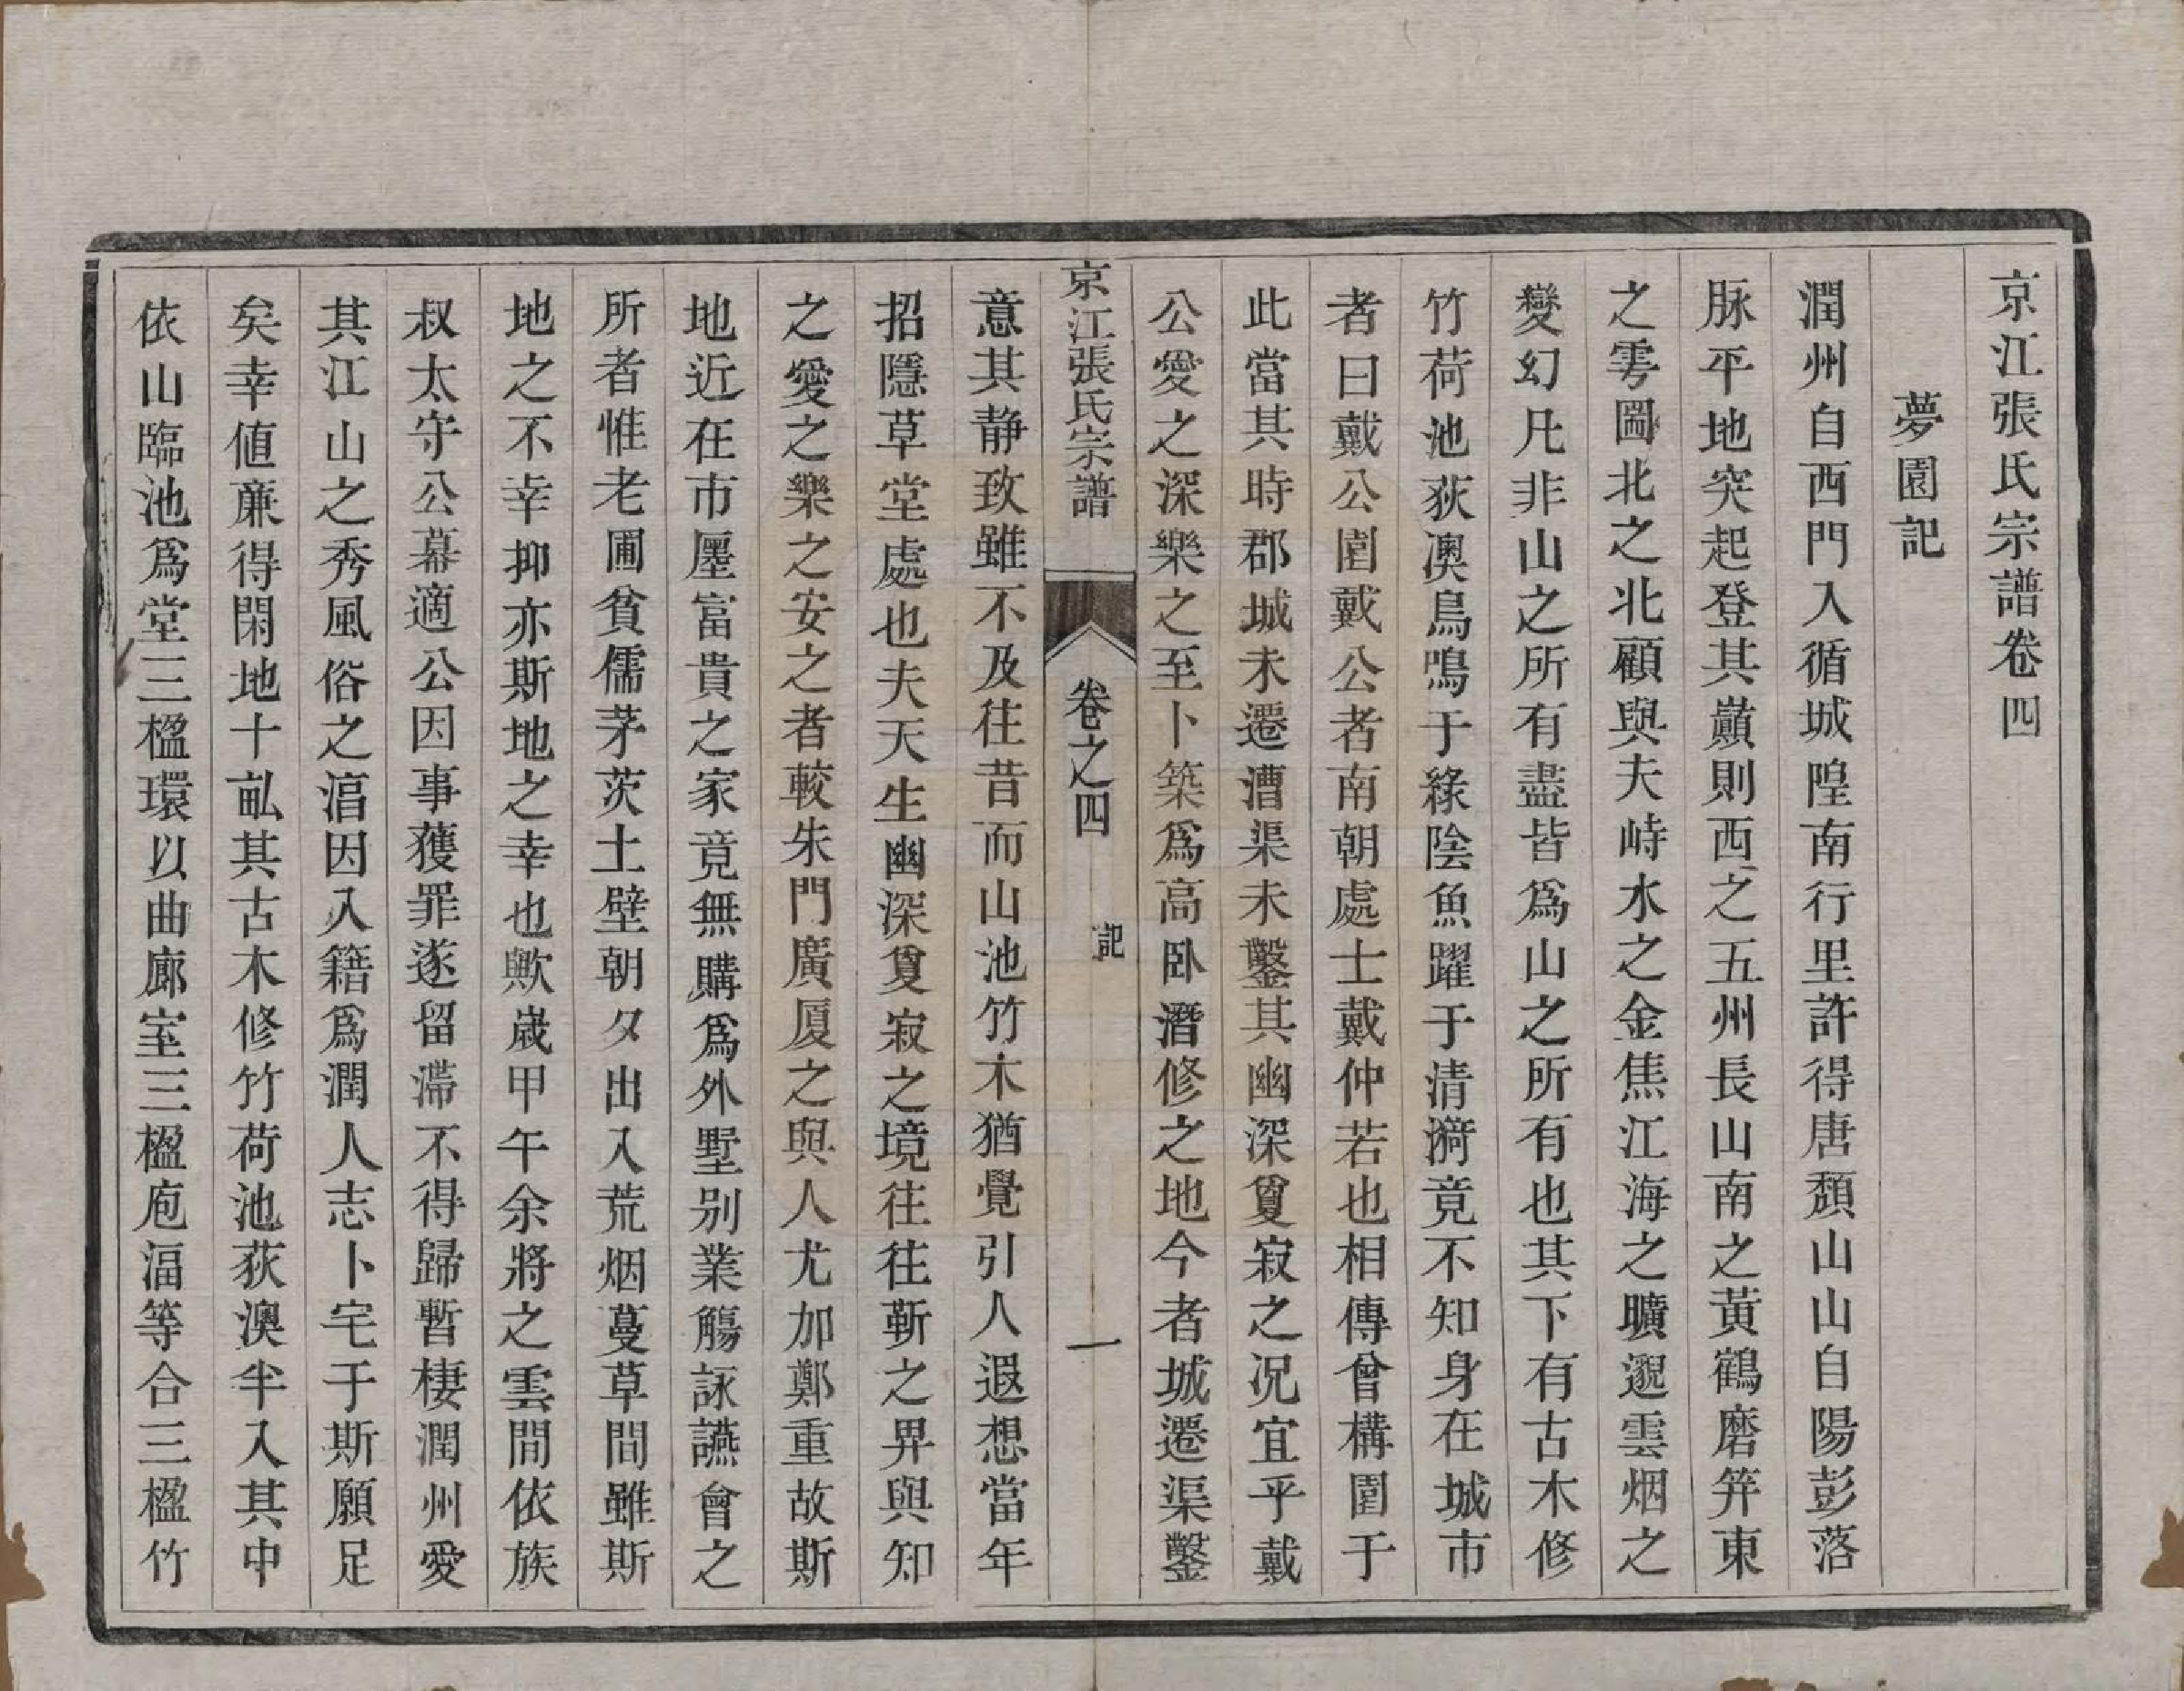 京江張氏宗譜卷四
夢園記
潤州自西門入循城隍南行里許得唐頹山山自陽彭落
脉平地突起登其巔則西之五州長山南之黃鶴磨笄東
之雩圖北之北顧與夫峙水之金焦江海之曠邈雲烟之
變幻凡非山之所有盡皆爲山之所有也其下有古木修
竹荷池荻澳鳥鳴于綠陰魚躍于清漪竟不知身在城市
者曰戴公園戴公者南朝處士戴仲若也相傳曾構園于
此當其時郡城未遷漕渠未鑿其幽深敻寂之況宜乎戴
公愛之深樂之至卜築爲高卧潛修之地今者城遷渠鑿
京江張氏宗譜 卷之四 記 一
意其静致雖不及往昔而山池竹木猶覺引人遐想當年
招隱草堂處也夫天生幽深敻寂之境往往靳之界與知
之愛之樂之安之者較朱門廣厦之與人尤加鄭重故斯
地近在市廛富貴之家竟無購爲外墅别業觴詠讌會之
所者惟老圃貧儒茅茨土壁朝夕出入荒烟蔓草間雖斯
地之不幸抑亦斯地之幸也歟歲甲午余將之雲間依族
叔太守公幕適公因事獲罪遂留滯不得歸暫棲潤州愛
其江山之秀風俗之湻因入籍爲潤人志卜宅于斯願足
矣幸値亷得閑地十畆其古木修竹荷池荻澳半入其中
依山臨池爲堂三楹環以曲廊室三楹庖湢等合三楹竹